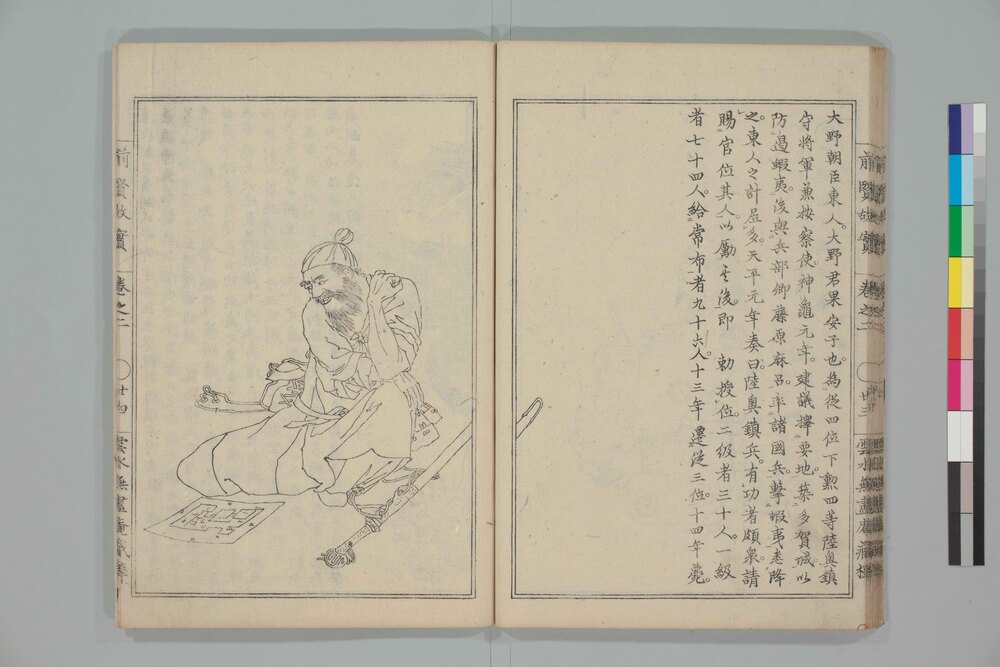 大野朝臣東人。大野君果安子也。為從四位下勲四等陸奥鎮
守将軍兼按察使。神龜元年。建議擇要地。築多賀城。以
防遏蝦夷。後與兵部卿藤原麻呂。率諸國兵。擊蝦夷。悉降
之。東人之計居多。天平元年奏曰。陸奥鎮兵。有功者頗衆。請
賜官位其人。以勵其後。即 勅授位二級者三十人。一級
者七十四人。給常布者九十六人。十三年遷從三位。十四年薨。
前賢故實 卷之二 廿三
前賢故實 卷之二 廿四